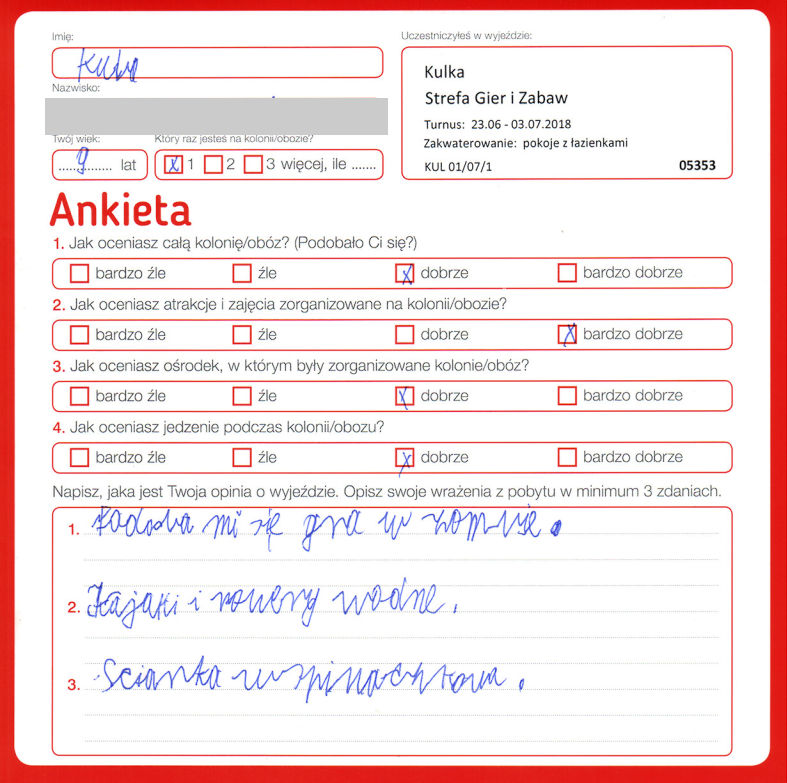 Imię:
Uczestniczyłeś w wyjeździe:
Kuba
Nazwisko:
Kulka
Strefa Gier i Zabaw
Turnus: 23.06 - 03.07.2018
Zakwaterowanie: pokoje z łazienkami
KUL 01/07/1 05353
Twój wiek:
Który raz jesteś na kolonii/obozie?
9 lat
x 1 2 3 więcej, ile .......
Ankieta
1. Jak oceniasz całą kolonię/obóz? (Podobało Ci się?)
bardzo źle źle x dobrze bardzo dobrze
2. Jak oceniasz atrakcje i zajęcia zorganizowane na kolonii/obozie?
bardzo źle źle dobrze x bardzo dobrze
3. Jak oceniasz ośrodek, w którym były zorganizowane kolonie/obóz?
bardzo źle źle x dobrze bardzo dobrze
4. Jak oceniasz jedzenie podczas kolonii/obozu?
bardzo źle źle x dobrze bardzo dobrze
Napisz, jaka jest Twoja opinia o wyjeździe. Opisz swoje wrażenia z pobytu w minimum 3 zdaniach.
1. Podoba mi się gra w zombie.
2. Kajaki i rowery wodne.
3. Scianka wspinaczkowa.